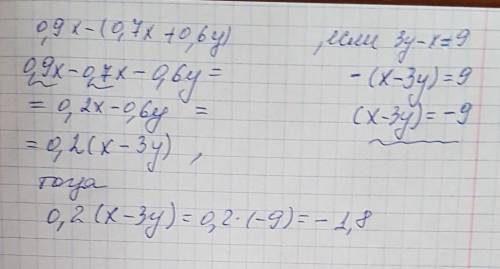 0,9x-(0,7x+0,6y) , если 3y-x=9
0,9x-0,7x-0,6y= -(x-3y)=9
=0,2x-0,6y = (x-3y)=-9
=0,2(x-3y) ,
тогда
0,2(x-3y)=0,2·(-9)=-1,8